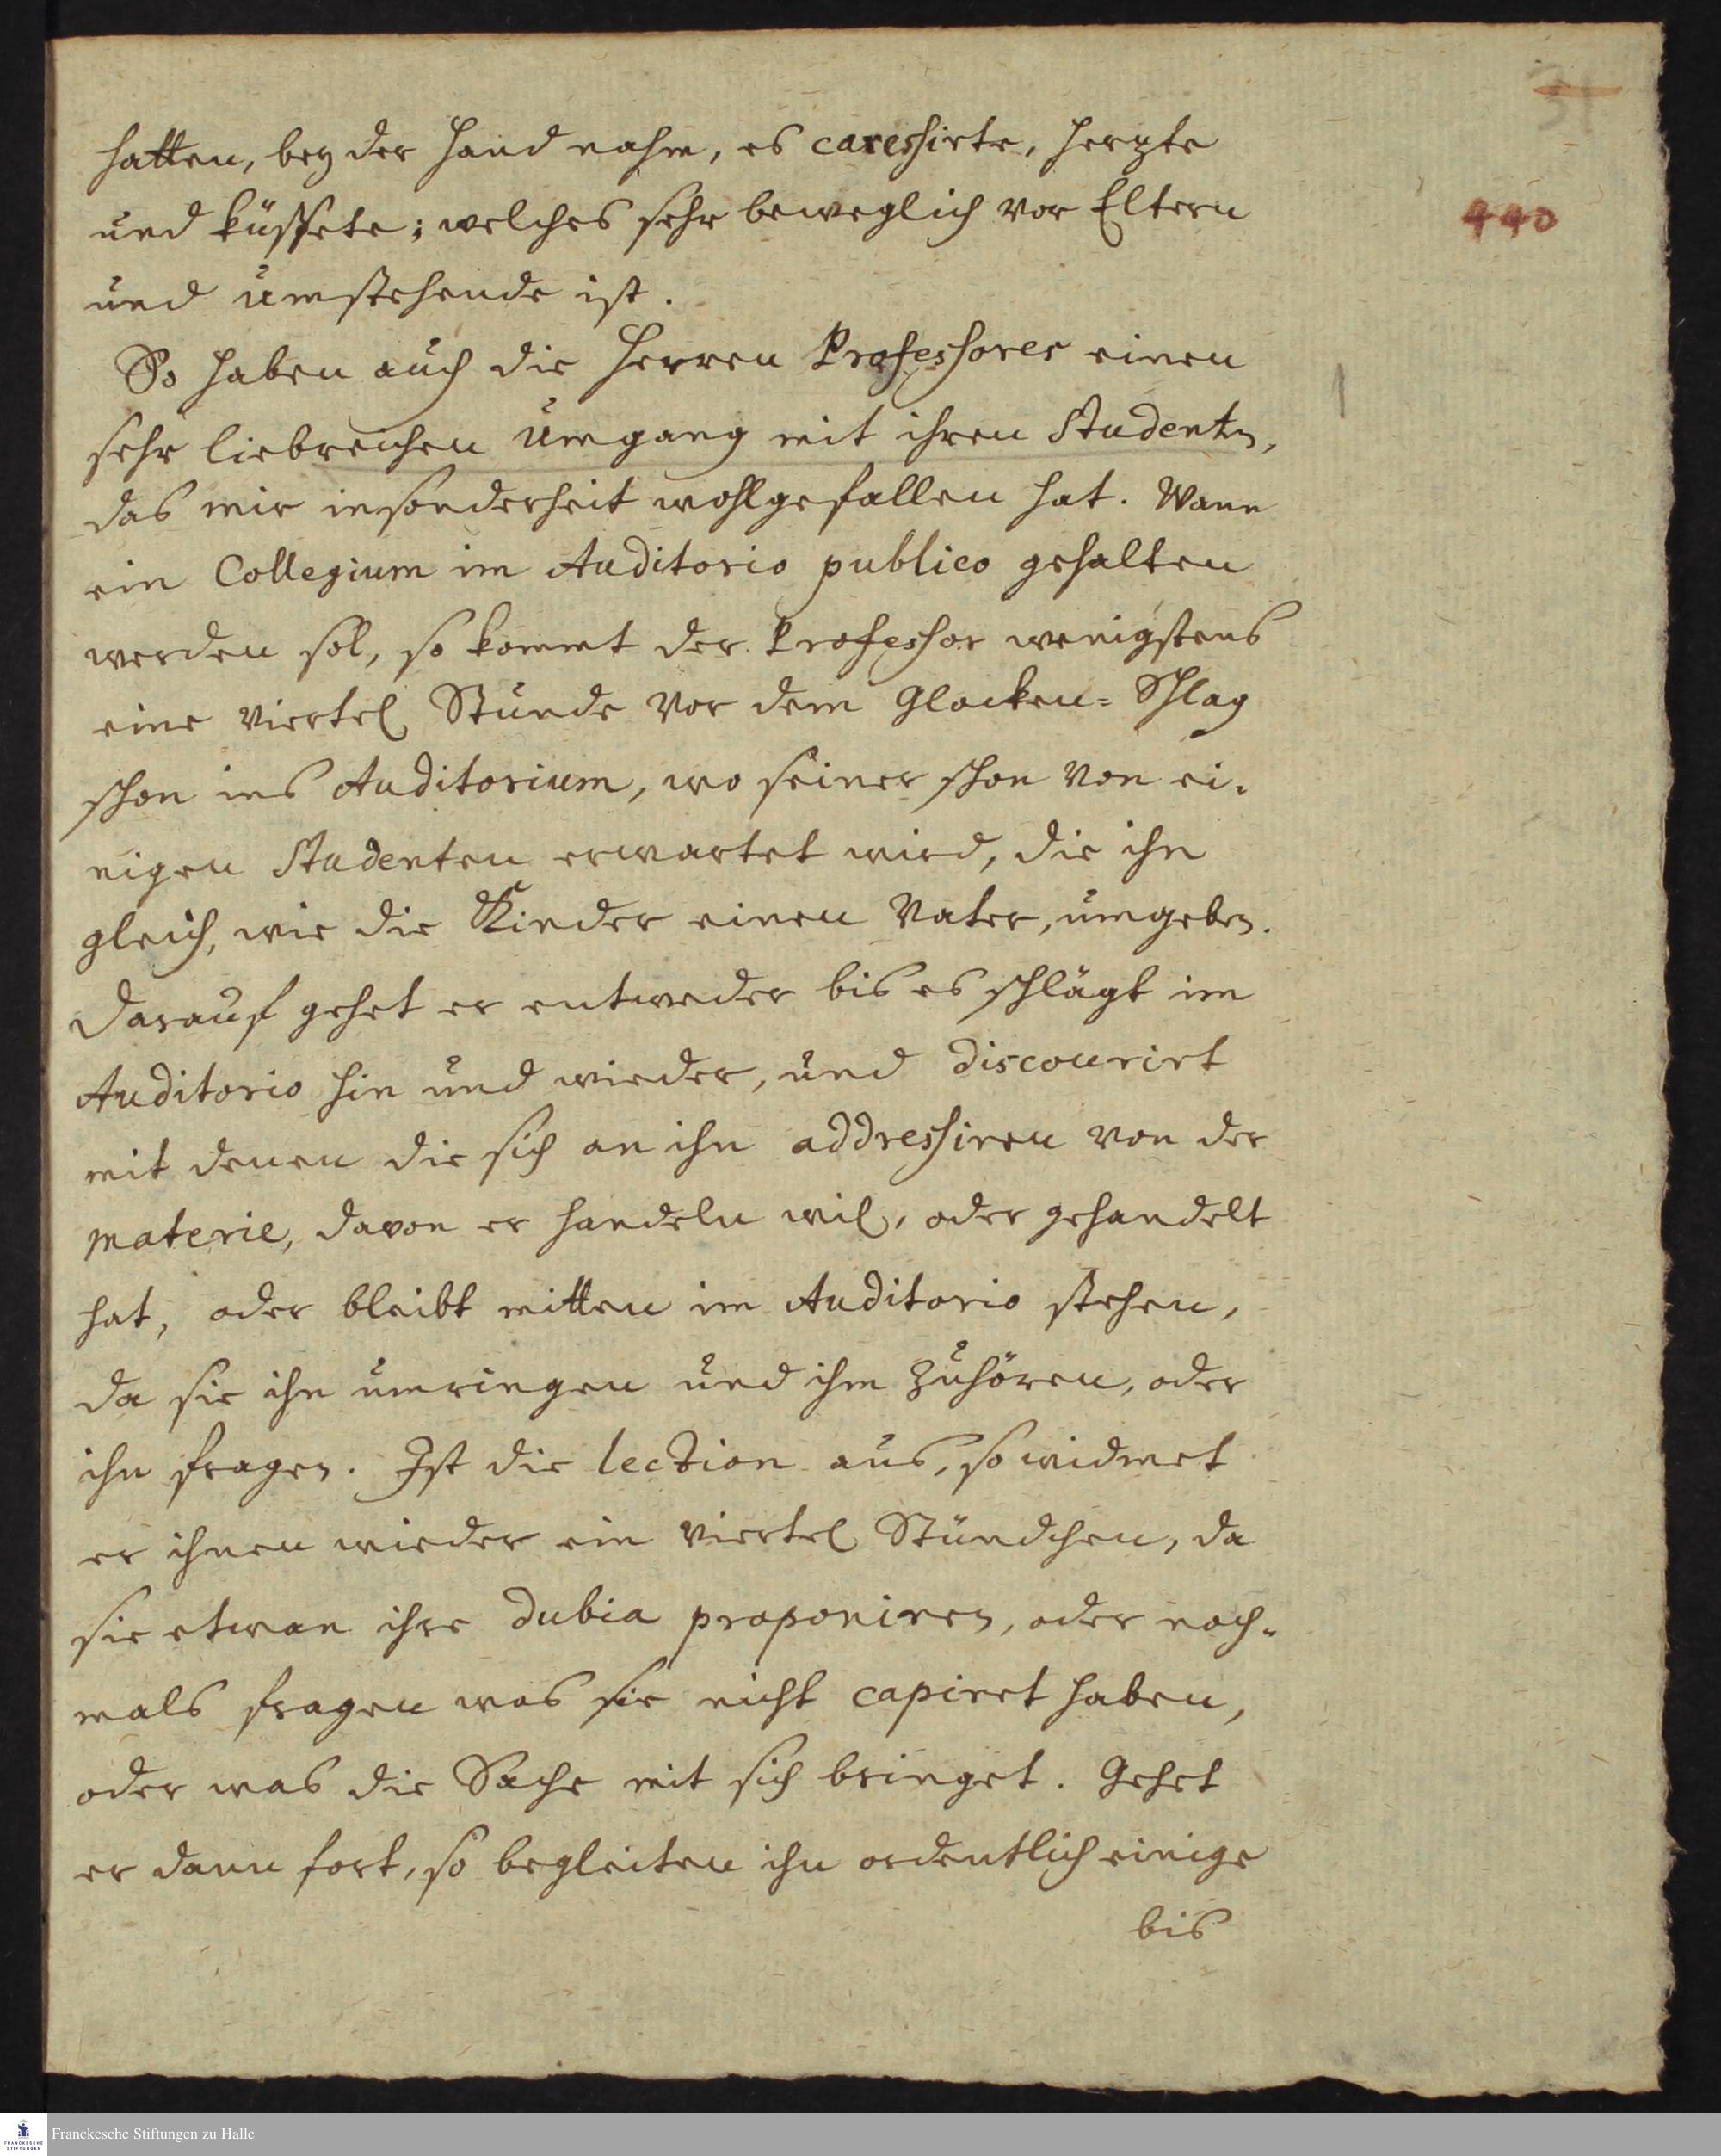 31
440
hatten, bey der Hand nahm, es caressirte, hertzte
und küssete; welches sehr beweglich vor Eltern
und umstehende ist.
So haben auch die Herren Professores einen
sehr liebreichen Umgang mit ihren Studenten,
das mir insonderheit wohlgefallen hat. Wann
ein Collegium im Auditorio publico gehalten
werden sol, so kommt der Professor wenigstens
eine viertel Stunde vor dem Glocken-Schlag
schon ins Auditorium, wo seiner schon von ei-
nigen Studenten erwartet wird, die ihn
gleich, wie die Kinder einen Vater, umgeben.
Darauf gehet er entweder bis es schlägt im
Auditorio hin und wieder, und discourirt
mit denen die sich an ihn addressiren von der
materie, davon er handeln wil, oder gehandelt
hat, oder bleibt mitten im Auditorio stehen,
da sie ihn umringen und ihm zuhören, oder
ihn fragen. Ist die lection aus, so widmet
er ihnen wieder ein viertel Stündchen, da
sie etwan ihre dubia proponiren, oder noch-
mals fragen was sie nicht capiret haben,
oder was die Sache mit sich bringet. Gehet
er dann fort, so begleiten ihn ordentlich einige
bis
FRANCKESCHE
STIFTUNGEN
Franckesche Stiftungen zu Halle